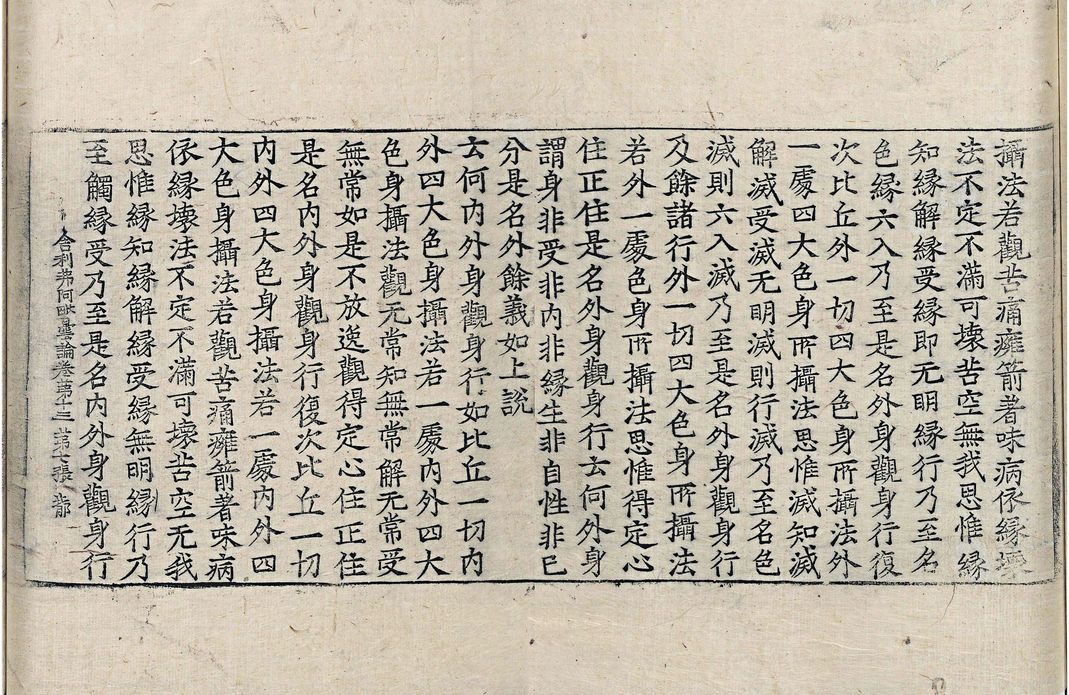 攝法若觀苦痛癰箭著味病依緣壞
法不定不滿可壞苦空無我思惟緣
知緣解緣受緣即无明緣行乃至名
色緣六入乃至是名外身觀身行復
次比丘外一切四大色身所攝法外
一處四大色身所攝法思惟滅知滅
解滅受滅无明滅則行滅乃至名色
滅則六入滅乃至是名外身觀身行
及餘諸行外一切四大色身所攝法
若外一處色身所攝法思惟得定心
住正住是名外身觀身行云何外身
謂身非受非内非緣生非自性非已
分是名外餘義如上說
云何内外身觀身行如比丘一切内
外四大色身攝法若一處内外四大
色身攝法觀无常知無常解无常受
無常如是不放逸觀得定心住正住
是名内外身觀身行復次比丘一切
内外四大色身攝法若一處内外四
大色身攝法若觀苦痛癰箭著味病
依緣壞法不定不滿可壞苦空无我
思惟緣知緣解緣受緣無明緣行乃
至觸緣受乃至是名内外身觀身行
舍利弗阿毗曇論卷第十三 第七張